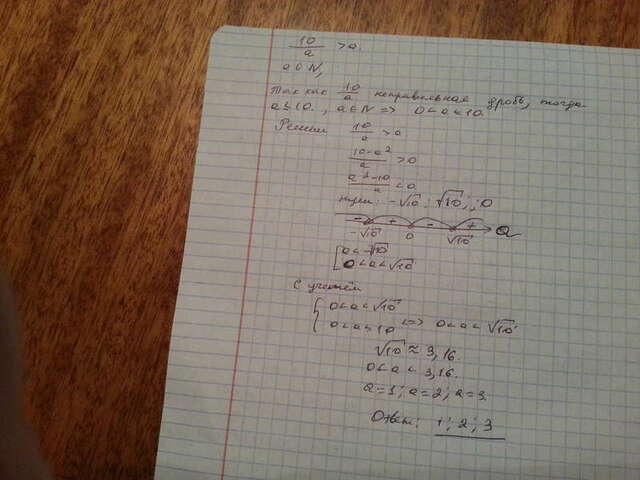 10/a > a.
a ∈ N,
Так как 10/a неправильная дробь, тогда
a ≤ 10., a ∈ N => 0 < a ≤ 10.
Решим 10/a > a
10-a²/a > 0
a²-10/a < 0
нули: -√10; √10; 0
- + - +
-√10 0 √10 a
[ a < -√10
0 < a < √10
С учётом
{ 0 < a < √10
0 < a ≤ 10 <=> 0 < a < √10.
√10 ≈ 3,16.
0 < a < 3,16.
a = 1; a = 2; a = 3.
Ответ: 1; 2; 3